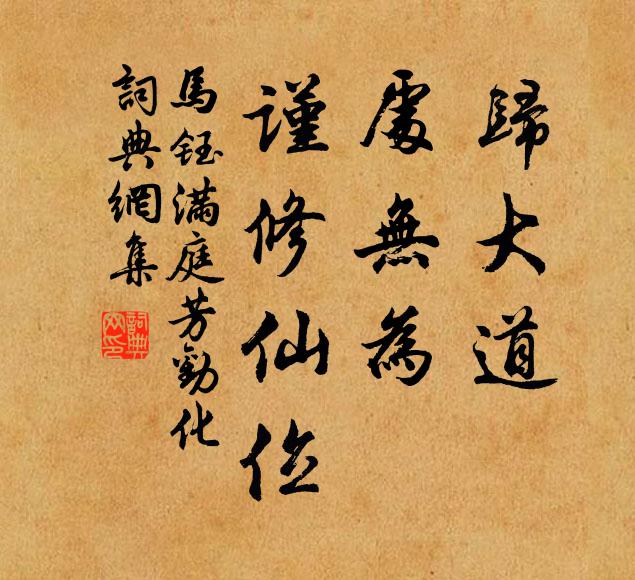 歸大道
處無為
謹修仙位
馬鈺滿庭芳勸化
詞典網集
詞典网印